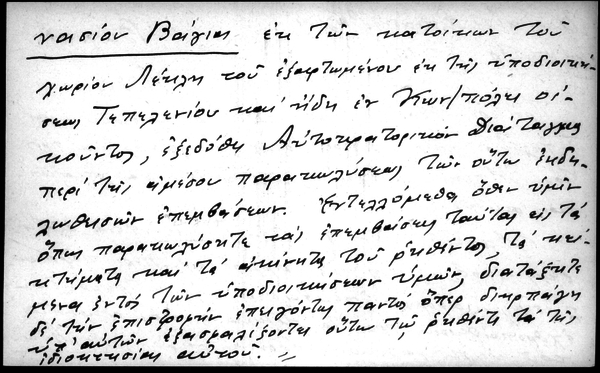 νασίου Βάγιας ἐκ τῶν κατοίκων τοῦ
χωρίου Λέκλη τοῦ ἐξαρτωμένου ἐκ τῆς ὑποδιοική-
σεως Τεπελενίου καί ἤδη ἐν Κων/πόλει οἰ-
κοῦντος, ἐξεδόθη Αὐτοκρατορικόν Διάταγμα
περί τῆς ἀμέσου παρακωλύσεως τῶν οὕτω ἐκδη-
λωθεισῶν ἐπεμβάσεων. Ἐντελλόμεθα ὅθεν ὑμῖν
ὅπως παρακωλύσητε τάς ἐπεμβάσεις ταύτας εἰς τά
κτήματα καί τά ἀκίνητα τοῦ ρηθέντος, τά κεί-
μενα ἐντός τῶν ὑποδιοικήσεων ὑμῶν, διατάξητε
δέ τήν ἐπιστροφήν ἐπειγόντως παντός ὅπερ διηρπάγη
ὑπ' αὐτῶν ἐξασφαλίζοντες οὕτω τῷ ρηθέντι τά τῆς
ἰδιοκτησίας αὐτοῦ.